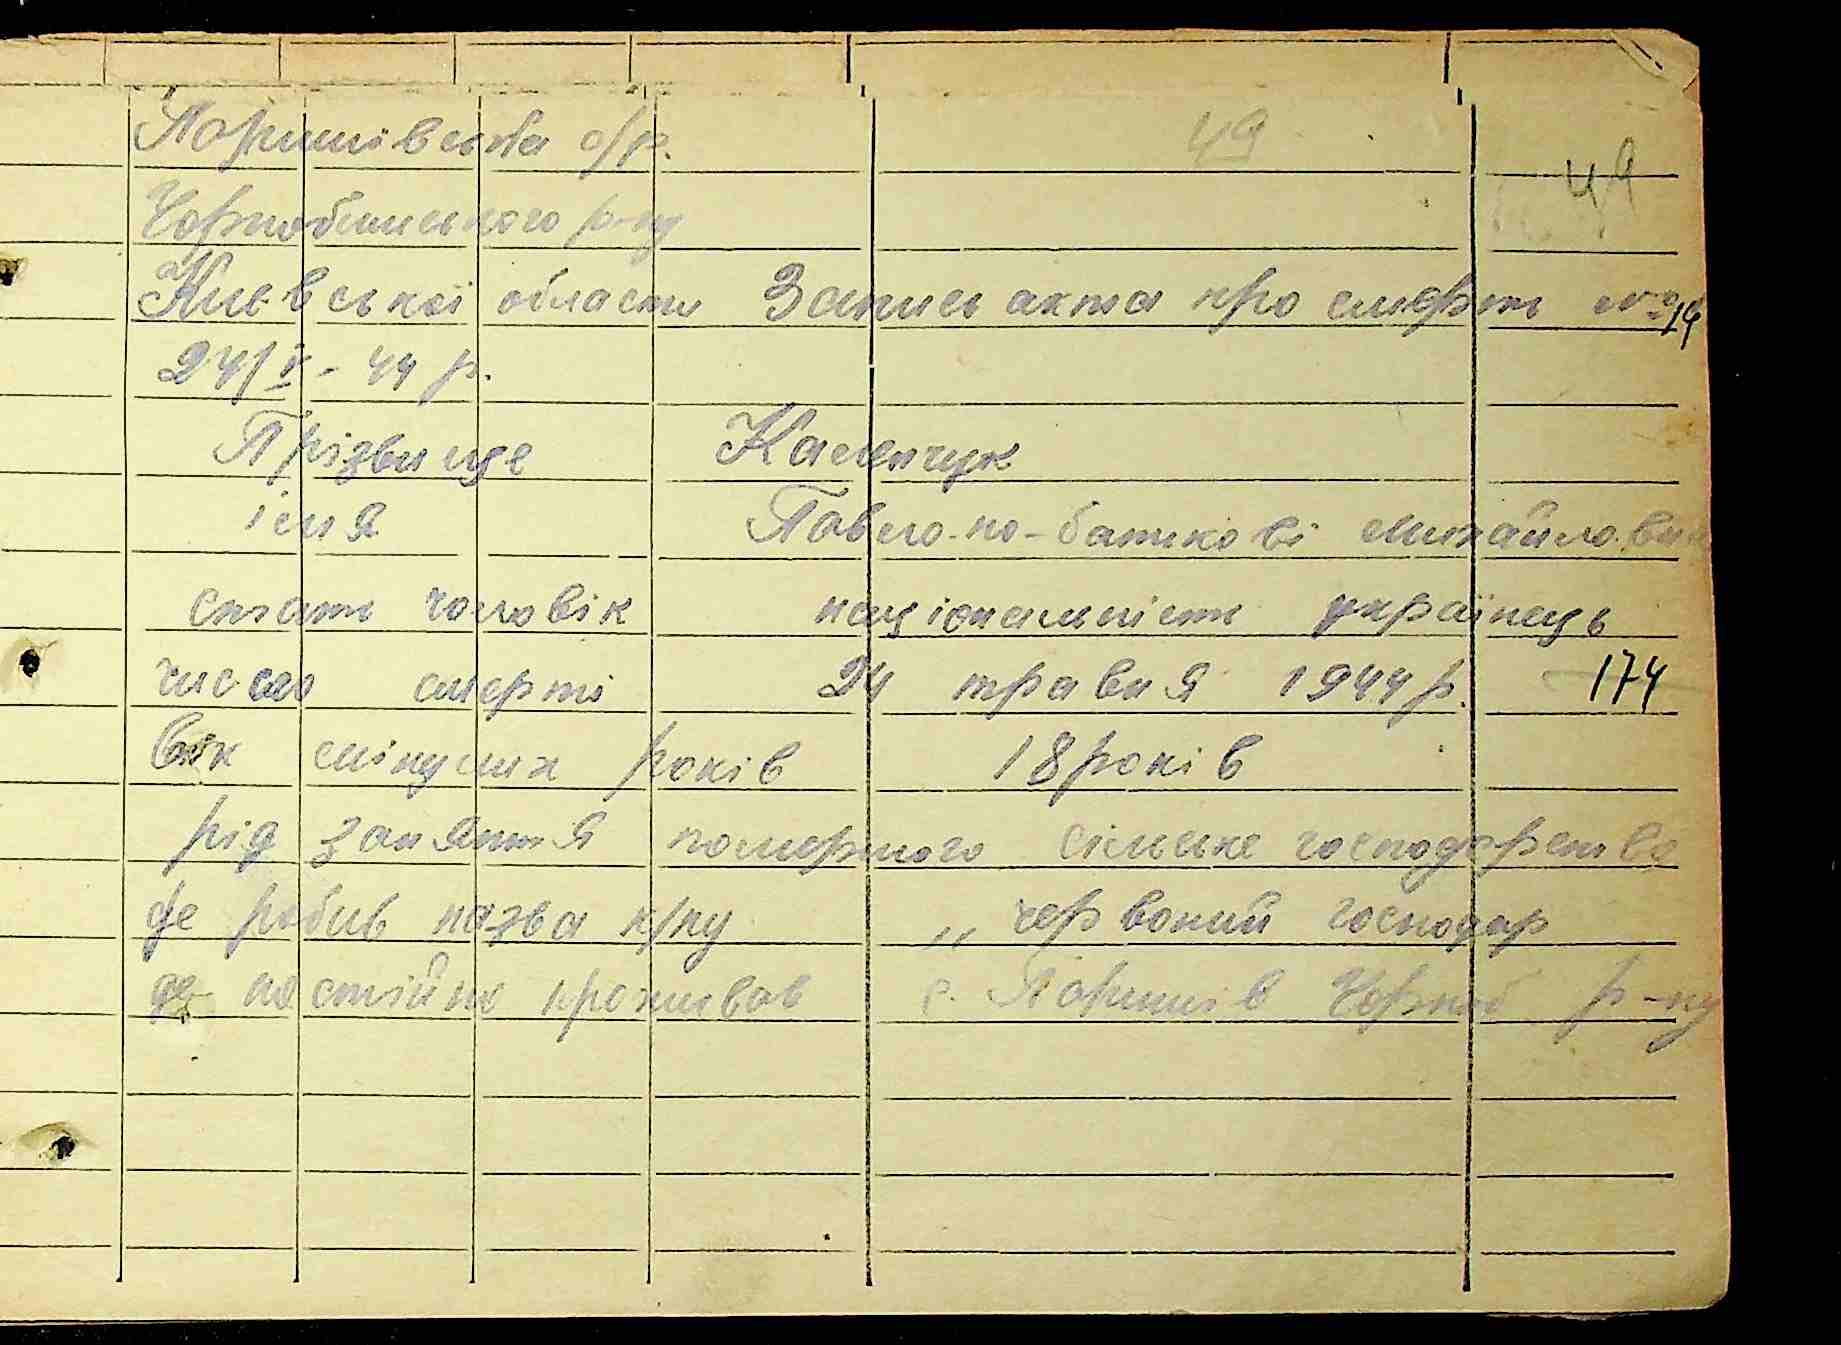 49
Паришівська с/р.
49
Чорнобильського р-ну
Києвської области Запис акта про смерть № 19
24/V - 44 р.
Прізвище Каленчук
імя Павло по-батькові Михайлович
стать чоловік національність українець
число смерті 24 травня 1944 р. 174
Вік минулих років 18 років
рід заняття померлого сільське господарство
де робив назва к/пу „ червоний господар
де постійно проживав с. Паришів Чорноб р-ну